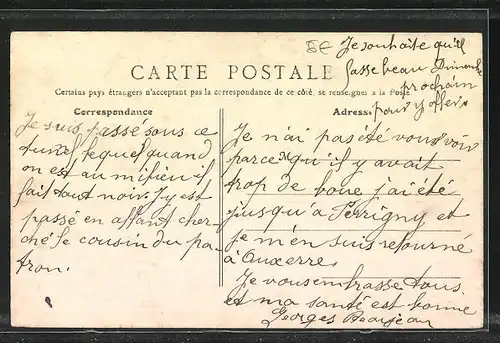 8€
Je souhaite qu'il
fasse beau Dimanche
prochain
pour y aller
CARTE POSTALE
Certains pays étrangers n'acceptant pas la correspondance de ce côté, se renseigner à la Poste
Correspondance
Je suis passé sous ce
tunel lequel quand
on est au milieu il
fait tout noir. J'y est
passé en allant cher-
ché le cousin du pa-
tron.
Adresse
Je n'ai pas été vous voir
parce qu'il y avait
trop de boue j'ai été
jusqu'à Perrigny et
je m'en suis retourné
à Auxerre
Je vous embrasse tous
et ma santé est bonne
Georges